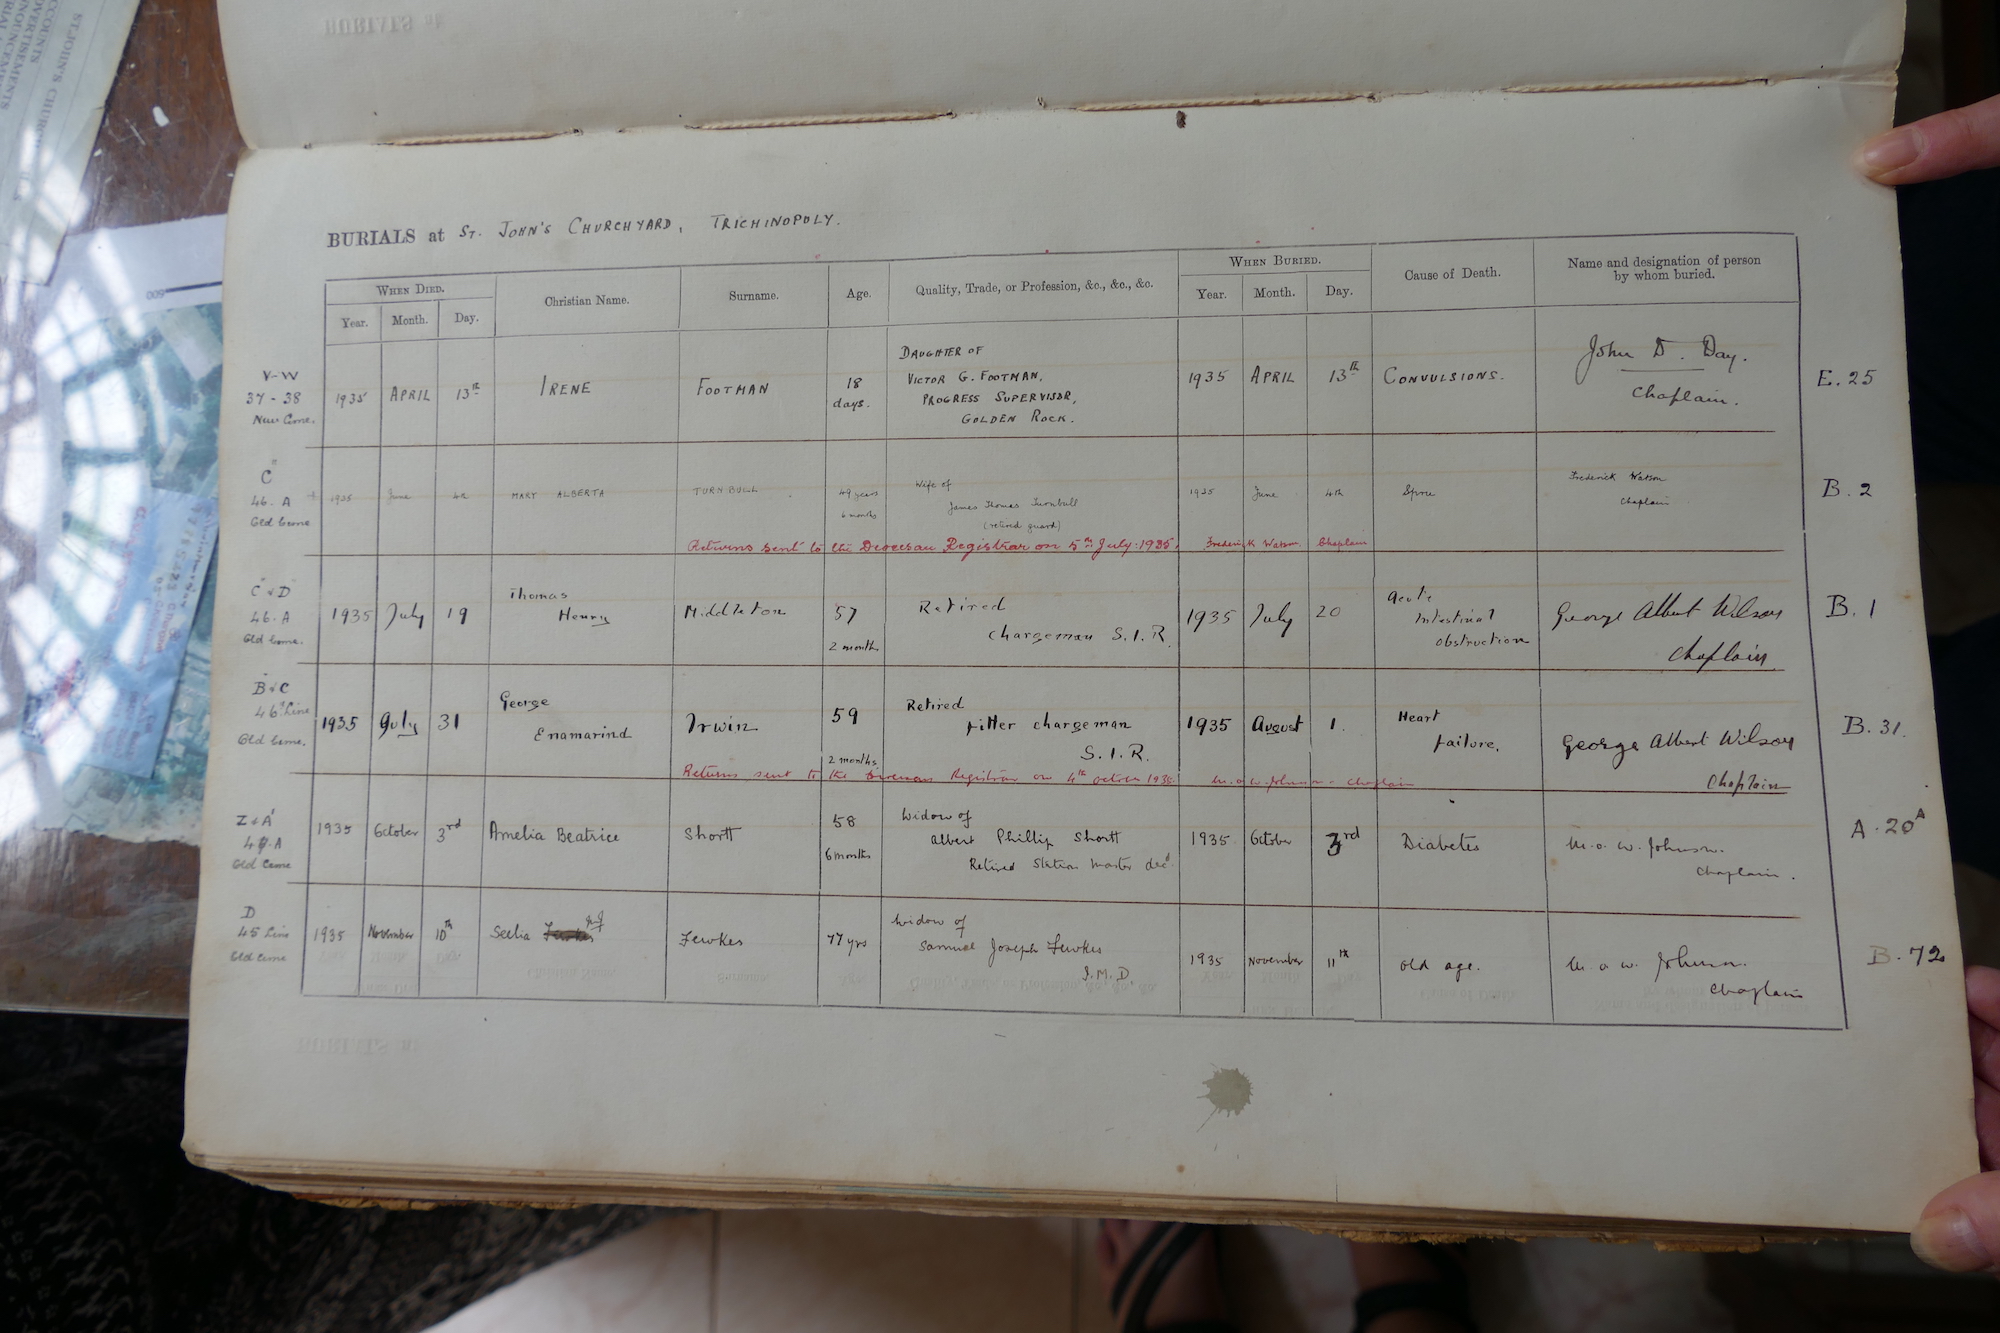 ST. JOHN'S CHURCH
BURIALS at ST. JOHN'S CHURCHYARD, TRICHINOPOLY.
WHEN DIED. Christian Name. Surname. Age. Quality, Trade, or Profession, &c., &c., &c. WHEN BURIED. Cause of Death. Name and designation of person by whom buried.
Year. Month. Day. Year. Month. Day.
V-W
37-38
New Ceme.
1935 APRIL 13th IRENE FOOTMAN 18 days.
DAUGHTER OF
VICTOR G. FOOTMAN,
PROGRESS SUPERVISOR,
GOLDEN ROCK.
1935 APRIL 13th CONVULSIONS.
John D. Day.
Chaplain.
E. 25
C"
46. A
Old Ceme
1935 June 4th MARY ALBERTA TURNBULL 49 years 6 months
Wife of
James Thomas Turnbull
(retired guard)
1935 June 4th Sprue
Frederick Watson
Chaplain
B. 2
Returns sent to the Diocesan Registrar on 5th July. 1935. Frederick Watson. Chaplain
C & D
46. A
Old Ceme.
1935 July 19 Thomas
Henry
Middleton 57
2 months
Retired
chargeman S.I.R.
1935 July 20
acute
intestinal
obstruction
George Albert Wilson
Chaplain
B. 1
B & C
46 Line
Old Ceme.
1935 July 31 George
Enamarind
Irwin 59
2 months
Retired
fitter chargeman
S.I.R.
1935 August 1.
Heart
failure.
George Albert Wilson
Chaplain
B. 31.
Returns sent to the Diocesan Registrar on 4th October 1935. M. O. W. Johnson - Chaplain
Z & A
49. A
Old Ceme
1935 October 3rd Amelia Beatrice Shortt 58
6 months
Widow of
Albert Phillip Shortt
Retired Station Master decd.
1935 October 3rd Diabetes
M. O. W. Johnson.
Chaplain.
A. 20A
D
45 Line
Old Ceme
1935 November 10th Seelia Fewkes 77 yrs
Widow of
Samuel Joseph Fewkes
I.M.D
1935 November 11th old age.
M. O. W. Johnson.
Chaplain
B. 72